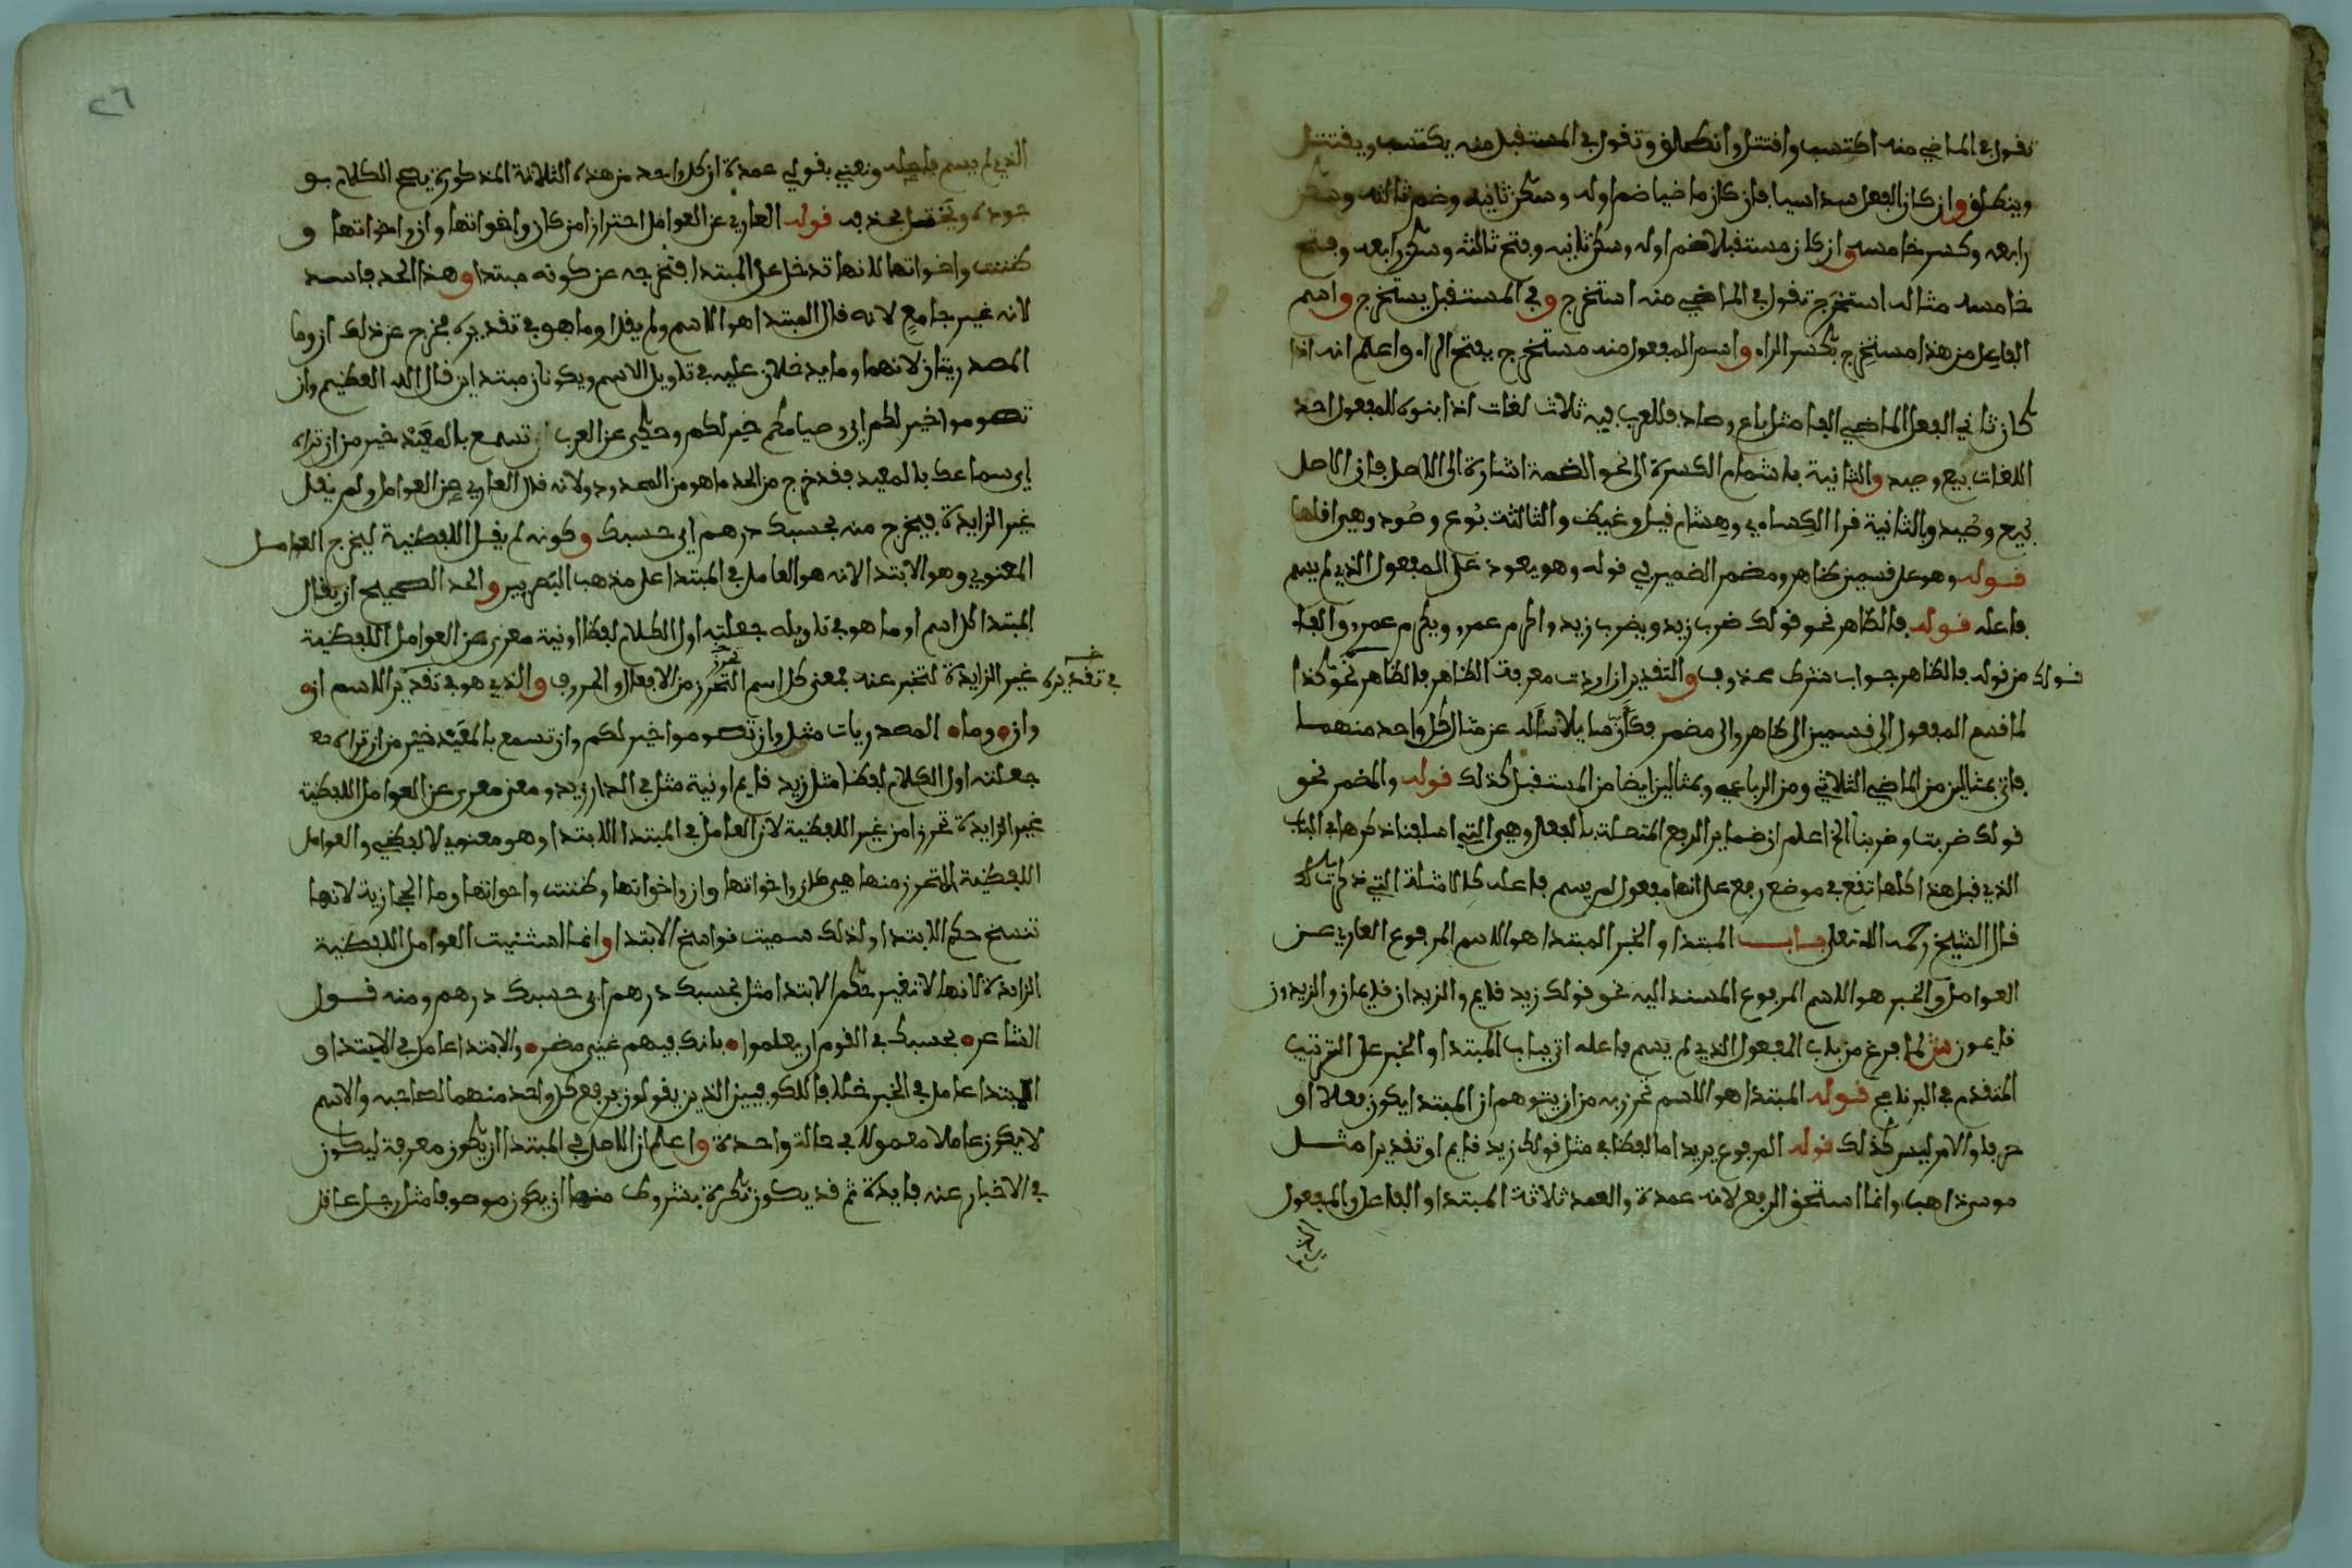 تقول في الماضي منه اكتسب واقتتل وانطلق وتقول في المستقبل منه يكتسب ويقتتل
وينطلق وان كان الفعل سداسيا فان كان ماضيا ضم اوله وسكن ثانيه وضم ثالثه وسكن
رابعه وكسر خامسه وان كان مستقبلا ضم اوله وسكن ثانيه وفتح ثالثه وسكن رابعه وفتح
خامسه مثاله استخرج تقول في الماضي منه استخرج وفي المستقبل يستخرج واسم
الفاعل من هذا مستخرج بكسر الراء واسم المفعول منه مستخرج بفتح الراء واعلم انه اذا
كان ثاني الفعل الماضي الفا مثل باع وصاد فللعرب فيه ثلاث لغات اذا بنوه للمفعول احد
اللغات بيع وصيد والثانية باشمام الكسرة الى نحو الضمة اشارة الى الاصل فان الاصل
بيع وصيد وبالثانية قرا الكسامي وهشام قيل وغيض والثالثة بوع وصود وهي اقلها
قوله وهو على قسمين ظاهر ومضمر الضمير في قوله وهو يعود على المفعول الذي لم يسم
فاعله قوله فالظاهر نحو قولك ضرب زيد ويضرب زيد واكرم عمرو ويكرم عمرو والفاء
من قوله فالظاهر جواب شرط محذوف والتقدير ان اردت معرفة الظاهر فالظاهر نحو كذا
قولك
لما قسم المفعول الى قسمين الى ظاهر والى مضمر فكان سايلا ساله عن مثال كل واحد منهما
فاتى بمثالين من الماضي الثلاثي ومن الرباعي وبمثالين ايضا من المستقبل كذلك قوله والمضمر نحو
قولك ضربت وضربنا الخ اعلم ان ضماير الرفع المتصلة بالفعل وهي التي اسلفنا ذكرها في الباب
الذي قبل هذا كلها تقع في موضع رفع على انها مفعول لم يسم فاعله كالامثلة التي ذكرت لك
قال الشيخ رحمه الله تعلى باب المبتدا والخبر المبتدا هو الاسم المرفوع العاري عن
العوامل والخبر هو الاسم المرفوع المسند اليه نحو قولك زيد قايم والزيدان قايمان والزيدون
قايمون ش لما فرغ من باب المفعول الذي لم يسم فاعله اتى بباب المبتدا والخبر على الترتيب
المتقدم في البرنامج قوله المبتدا هو الاسم تحرز به من ان يتوهم ان المبتدا يكون فعلا او
حرفا والامر ليس كذلك قوله المرفوع يريد اما لفظا في مثل قولك زيد قايم او تقديرا مثل
موسى ذاهب وانما استحق الرفع لانه عمدة والعمد ثلاثة المبتدا والفاعل والمفعول
الذي لم
٢٦
الذي لم يسم فاعله ونعني بقولي عمدة ان كل واحد من هذه الثلاثة المذكورة يصح الكلام بو
جوده ويختل بحذفه قوله العاري عن العوامل احترازا من كان واخواتها وان واخواتها و
ظننت واخواتها لانها تدخل على المبتدا فتخرجه عن كونه مبتدا وهذا الحد فاسد
لانه غير جامع لانه قال المبتدا هو الاسم ولم يقل او ما هو في تقديره فخرج عن ذلك ان وما
المصدريتان لانهما وما يدخلان عليه في تاويل الاسم ويكونان مبتداين قال الله العظيم وان
تصوموا خير لكم اي وصيامكم خير لكم وحكي عن العرب تسمع بالمعيد خير من ان تراه
اي سماعك بالمعيد فقد خرج من الحد ما هو من المحدود ولانه قال العاري عن العوامل ولم يقل
غير الزايدة فيخرج منه بحسبك درهم اي حسبك وكونه لم يقل اللفظية ليخرج العوامل
المعنوي وهو الابتدا لانه هو العامل في المبتدا على مذهب البصريين والحد الصحيح ان يقال
المبتدا كل اسم او ما هو في تاويله جعلته اول الكلام لفظا او نية معرى عن العوامل اللفظية
غير الزايدة لتخبر عنه فمعنى كل اسم التحرز من الافعال والحروف والذي هو في تقدير الاسم ان
في تقديره
وان وما المصدريات مثل وان تصوموا خير لكم وان تسمع بالمعيد خير من ان تراه
جعلته اول الكلام لفظا مثل زيد قايم او نية مثل في الدار زيد ومعنى معرى عن العوامل اللفظية
غير الزايدة تحرزا من غير اللفظية لان العامل في المبتدا الابتدا وهو معنوي لا لفظي والعوامل
اللفظية المتحرز منها هي كان واخواتها وان واخواتها وظننت واخواتها وما الحجازية لانها
تنسخ حكم الابتدا ولذلك سميت نواسخ الابتدا وانما استثنيت العوامل اللفظية
الزايدة لانها لا تغير حكم الابتدا مثل بحسبك درهم اي حسبك درهم ومنه قول
الشاعر بحسبك في القوم ان يعلموا بانك فيهم غني مضر والابتدا عامل في الابتدا و
المبتدا عامل في الخبر خلافا للكوفيين الذين يقولون يرفع كل واحد منهما لصاحبه والاسم
لا يكون عاملا معمولا في حالة واحدة واعلم ان الاصل في المبتدا ان يكون معرفة ليكون
في الاخبار عنه فايدة ثم قد يكون نكرة بشروط منها ان يكون موصوفا مثل رجل عاقل